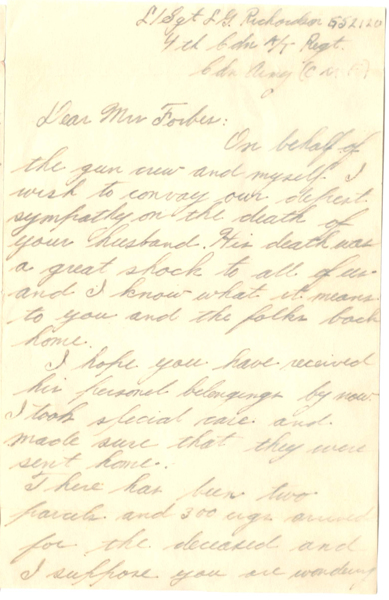 L/Sgt L G Richardson 552120
4th Cdn A/T Regt.
Cdn Army
Dear Mrs Forbes:
On behalf of
the gun crew and myself I
wish to convay our depest
sympathy on the death of
your husband. His death was
a great shock to all of us
and I know what it means
to you and the folks back
home.
I hope you have received
his personel belongings by now.
I took special care and
made sure that they were
sent home.
There has been two
parcels and 300 cigs arrived
for the deceased and
I suppose you are wondering